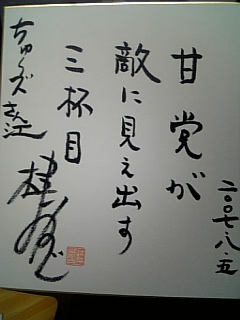 甘党が
敵に見え出す
三杯目
二〇〇七・八・五
ちゅーズさん江